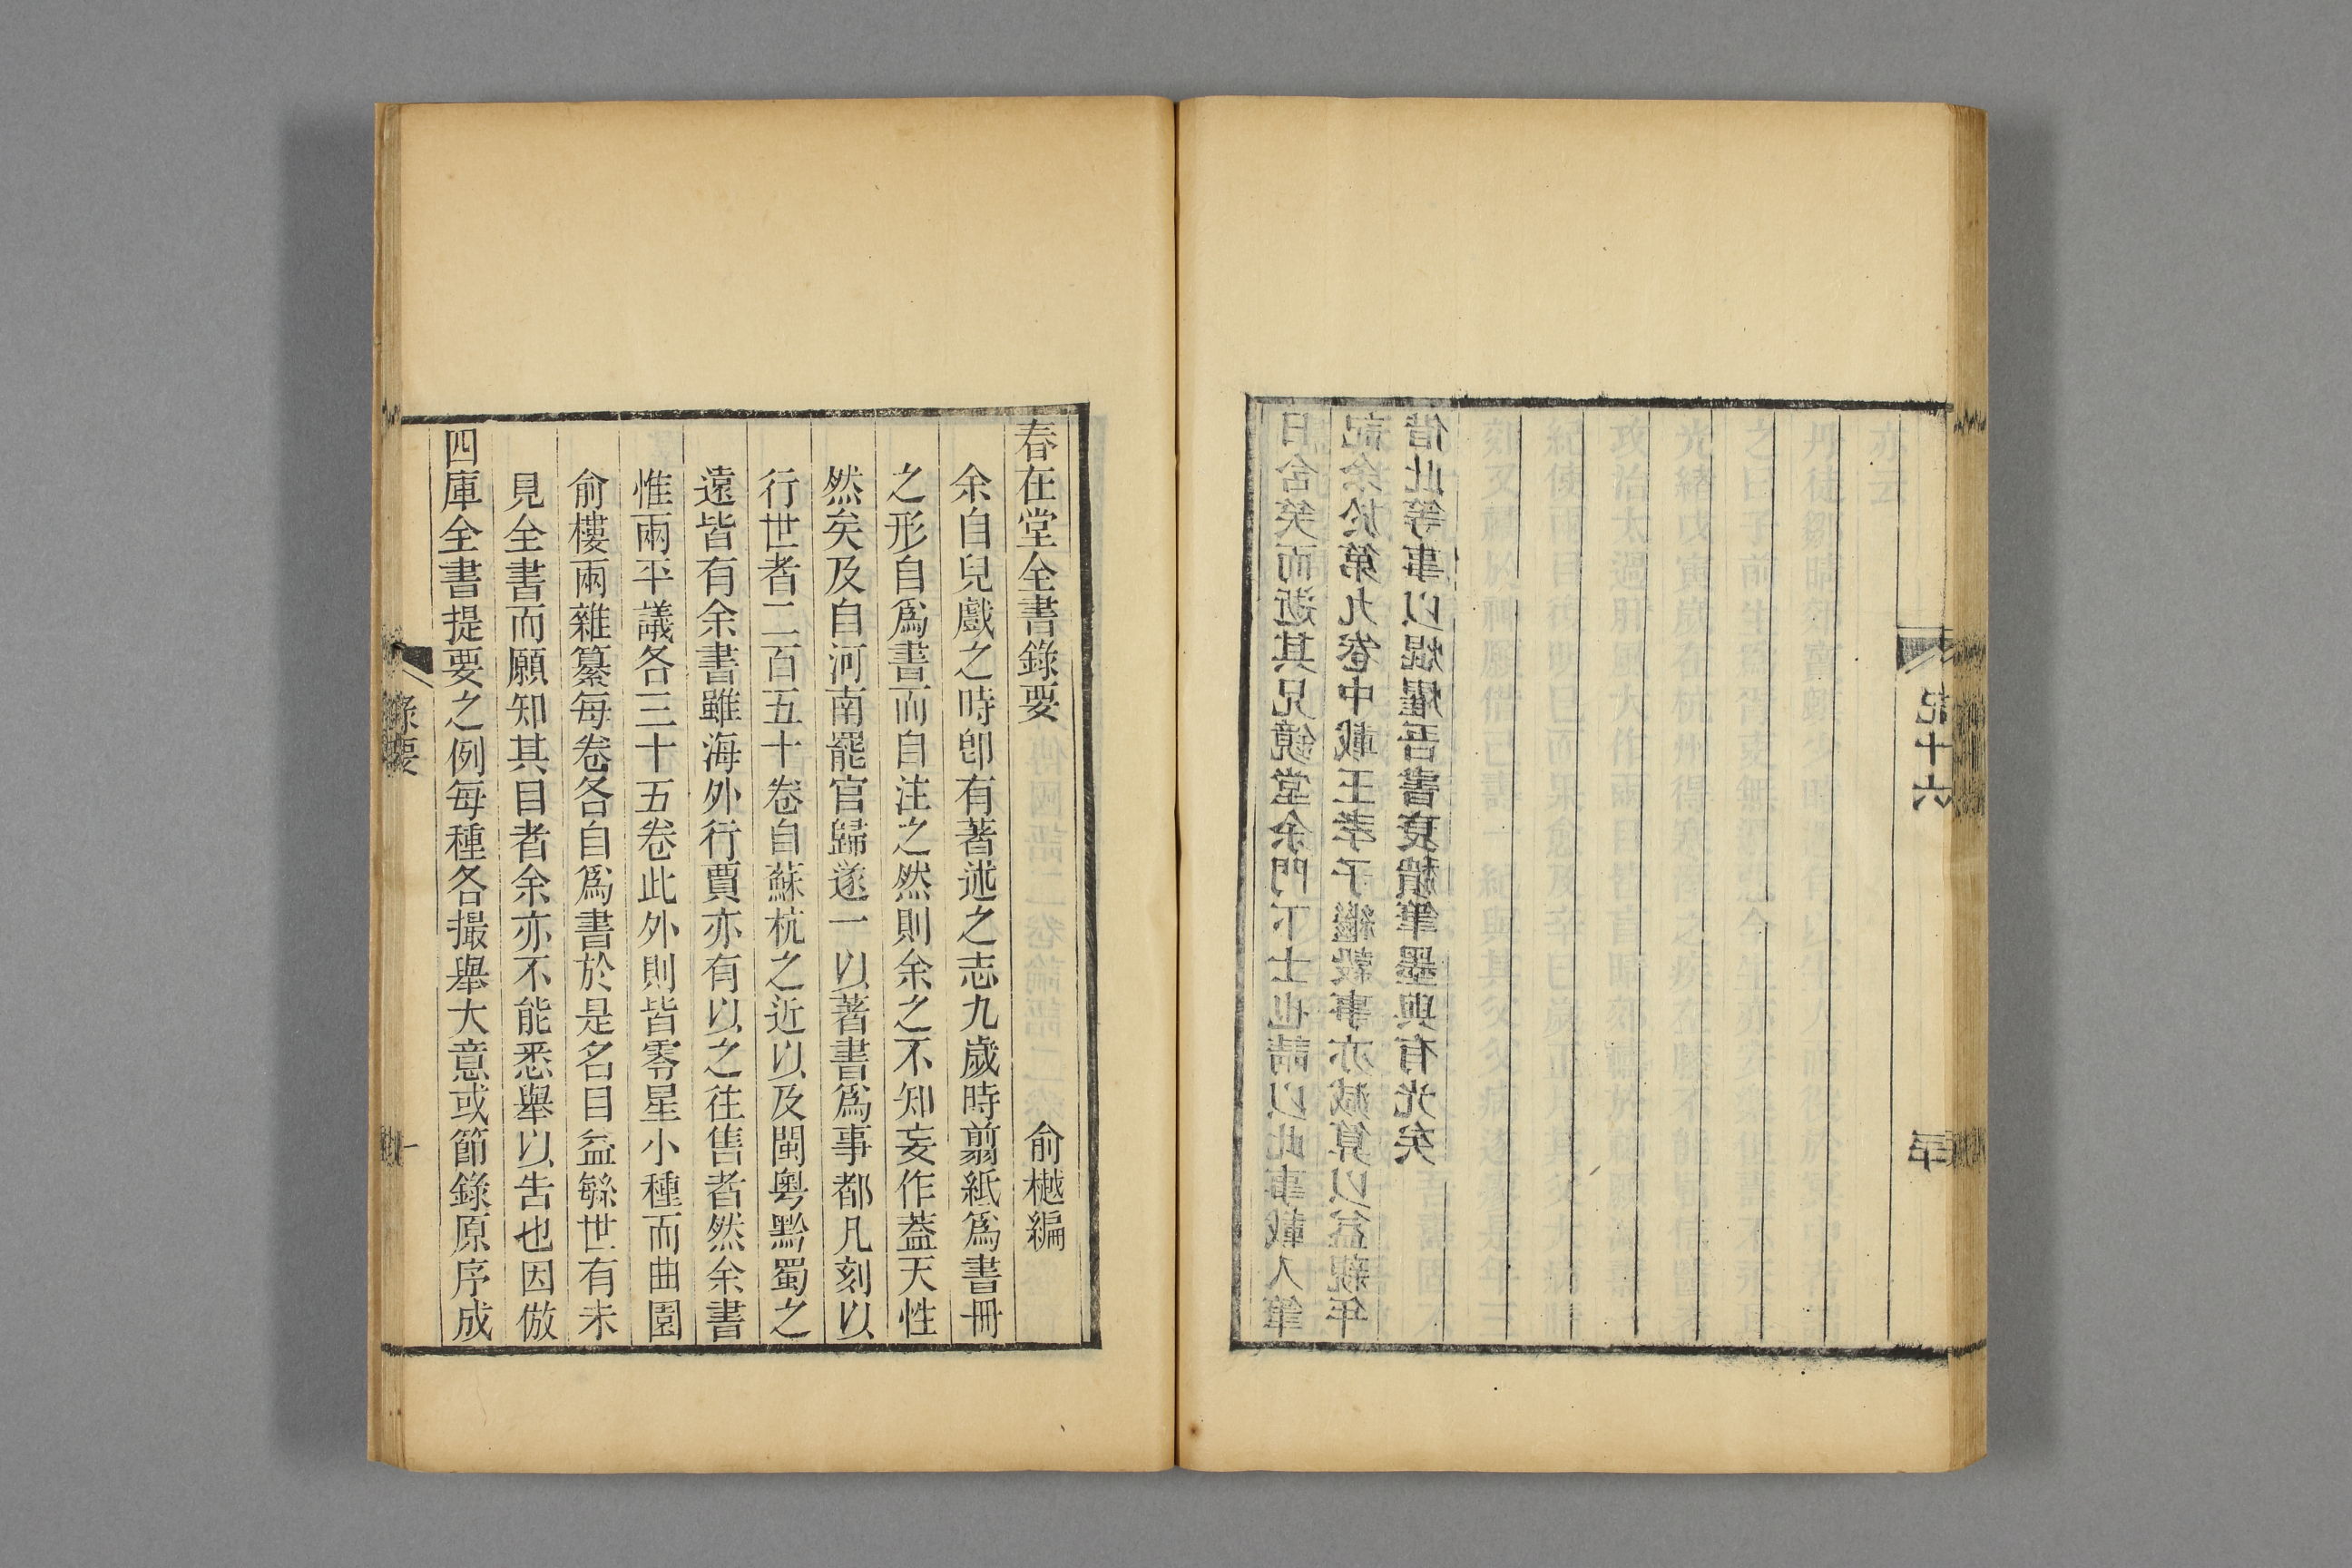 日含笑而逝其兄鏡堂余門下士也請以此事載入筆
記余於第九卷中載王孝子繼穀事亦減算以益親年
借此等事以焜燿吾書衰穨筆墨與有光矣
記十六
春在堂全書錄要
俞樾編
余自兒戲之時卽有著述之志九歲時翦紙爲書冊
之形自爲書而自注之然則余之不知妄作蓋天性
然矣及自河南罷官歸遂一以著書爲事都凡刻以
行世者二百五十卷自蘇杭之近以及閩粵黔蜀之
遠皆有余書雖海外行賈亦有以之往售者然余書
惟兩平議各三十五卷此外則皆零星小種而曲園
俞樓兩雜纂每卷各自爲書於是名目益緐世有未
見全書而願知其目者余亦不能悉舉以告也因倣
四庫全書提要之例每種各撮舉大意或節錄原序成
錄要
一